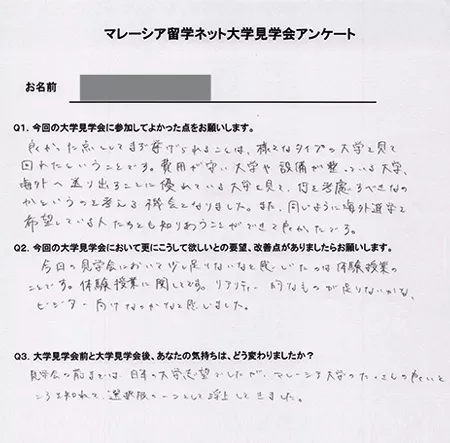 マレーシア留学ネット大学見学会アンケート
お名前
Q1. 今回の大学見学会に参加してよかった点をお願いします。
良かった点としてまず挙げられることは、様々なタイプの大学を見て
回れたということです。費用が安い大学や設備が整っている大学、
海外へ送り出ることに優れている大学を見て、何を考慮するべきなの
かというのを考える機会となりました。また、同じように海外進学を
希望している人たちとも知りあうことができて良かったです。
Q2. 今回の大学見学会において更にこうして欲しいとの要望、改善点がありましたらお願いします。
今回の見学会において少し足りないなと感じたのは体験授業の
ことです。体験授業に関してです。リアリティー的なもので足りないかな、
ビジター向けなのかなと感じました。
Q3. 大学見学会前と大学見学会後、あなたの気持ちは、どう変わりましたか？
見学会の前までは、日本の大学志望でしたが、マレーシア大学のたくさんの良いと
ころを知れて、選択肢の一つとして浮上してきました。